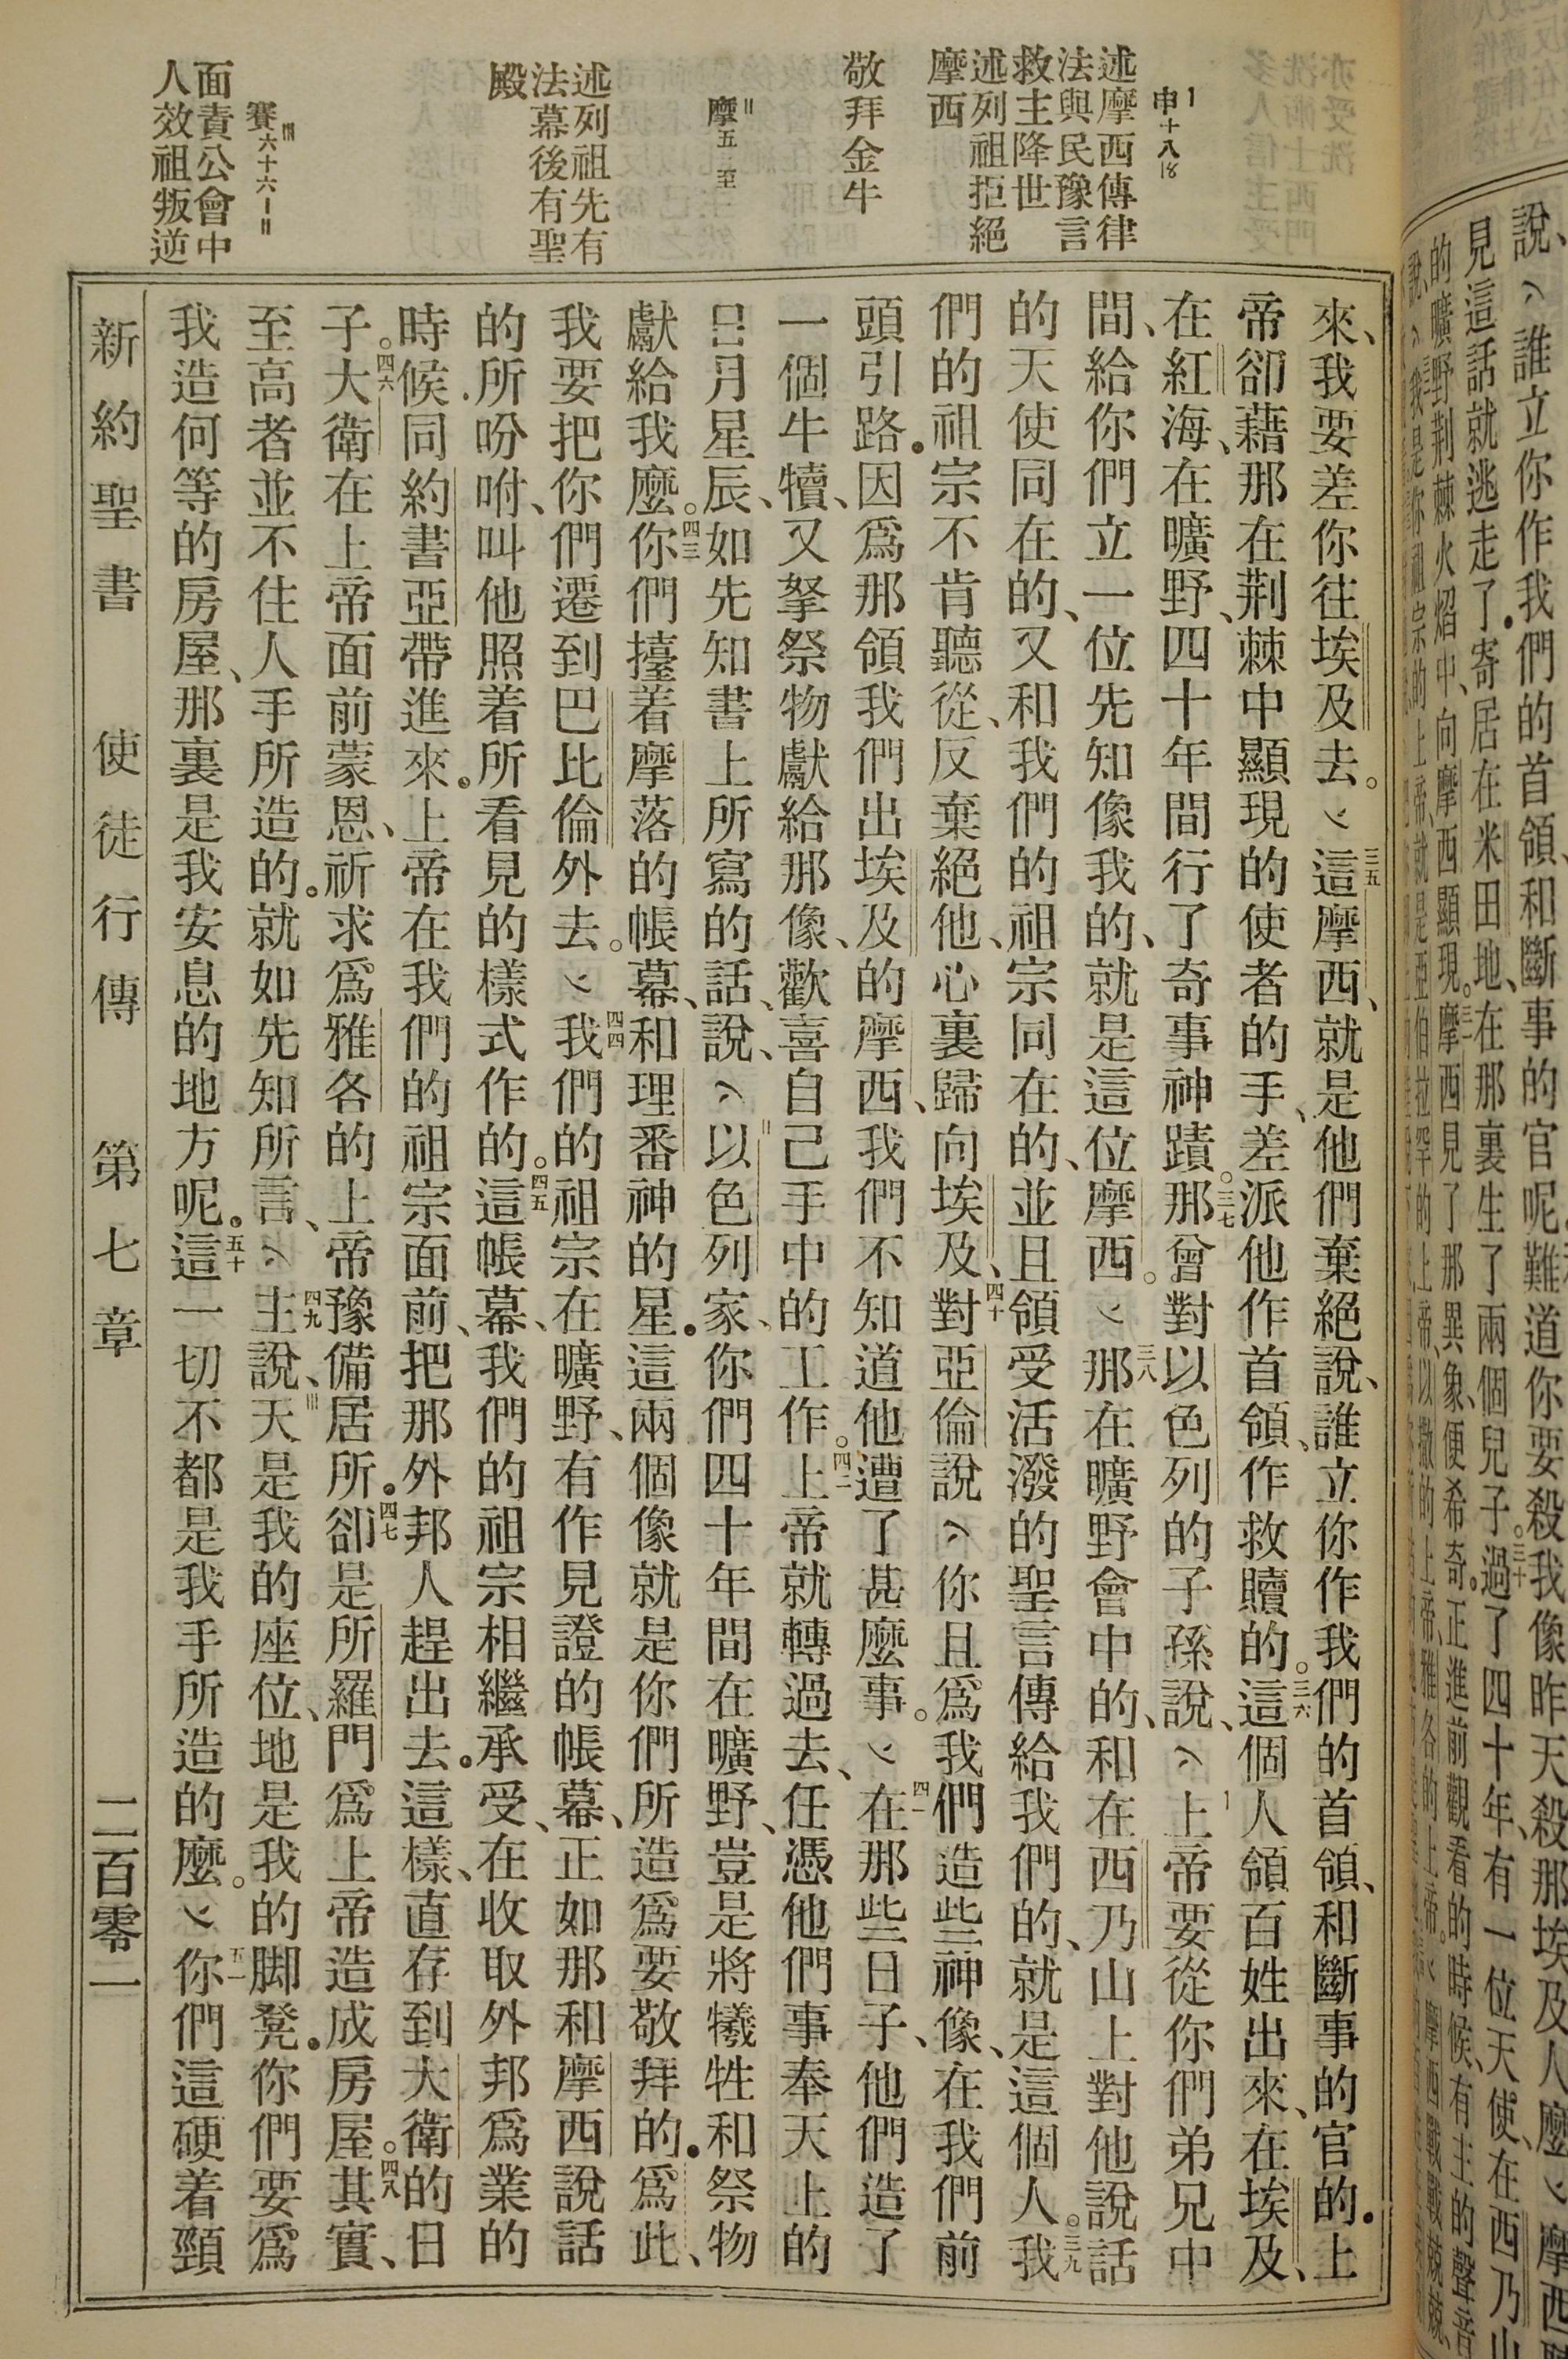 說、誰立你作我們的首領、和斷事的官呢難道你要殺我像昨天殺那埃及人麼摩西
見這話就逃走了寄居在米田地、在那裏生了兩個兒子。三十過了四十年、有一位天使、在西乃山
的曠野荆棘火焰中、向摩西顯現。三一摩西見了那異象、便希奇。正進前觀看的時候、有主的聲音
申十八18
述摩西傳律
法與民豫言
救主降世
述列祖拒絕
摩西
敬拜金牛
摩五至
述列祖先有
法幕後有聖
殿
賽六十六
面責公會中
人效祖叛逆
來、我要差你往埃及去。三五這摩西、就是他們棄絕說、誰立你作我們的首領、和斷事的官的。上
帝卻藉那在荆棘中顯現的使者的手、差派他作首領、作救贖的。三六這個人領百姓出來、在埃及、
在紅海、在曠野、四十年間行了奇事神蹟。三七那曾對以色列的子孫說、上帝要從你們弟兄中
間、給你們立一位先知像我的、就是這位摩西。三八那在曠野會中的、和在西乃山上對他說話
的天使同在的、又和我們的祖宗同在的、並且領受活潑的聖言傳給我們的、就是這個人。三九我
們的祖宗不肯聽從、反棄絕他、心裏歸向埃及、四十對亞倫說、你且爲我們造些神像、在我們前
頭引路。因爲那領我們出埃及的摩西、我們不知道他遭了甚麼事。四一在那些日子、他們造了
一個牛犢、又拏祭物獻給那像、歡喜自己手中的工作。四二上帝就轉過去、任憑他們事奉天上的
日月星辰、如先知書上所寫的話、說、以色列家、你們四十年間在曠野、豈是將犧牲和祭物
獻給我麼。四三你們擡着摩落的帳幕、和理番神的星。這兩個像就是你們所造爲要敬拜的。爲此、
我要把你們遷到巴比倫外去。四四我們的祖宗在曠野、有作見證的帳幕、正如那和摩西說話
的所吩咐、叫他照着所看見的樣式作的。四五這帳幕、我們的祖宗相繼承受、在收取外邦爲業的
時候、同約書亞帶進來。上帝在我們的祖宗面前、把那外邦人趕出去。這樣、直存到大衛的日
子。四六大衛在上帝面前蒙恩、祈求爲雅各的上帝豫備居所。四七卻是所羅門爲上帝造成房屋。四八其實、
至高者並不住人手所造的。就如先知所言、四九主說、天是我的座位、地是我的脚凳。你們要爲
我造何等的房屋、那裏是我安息的地方呢。五十這一切不都是我手所造的麼。五一你們這硬着頸
新約聖書　使徒行傳　第七章　二百零一